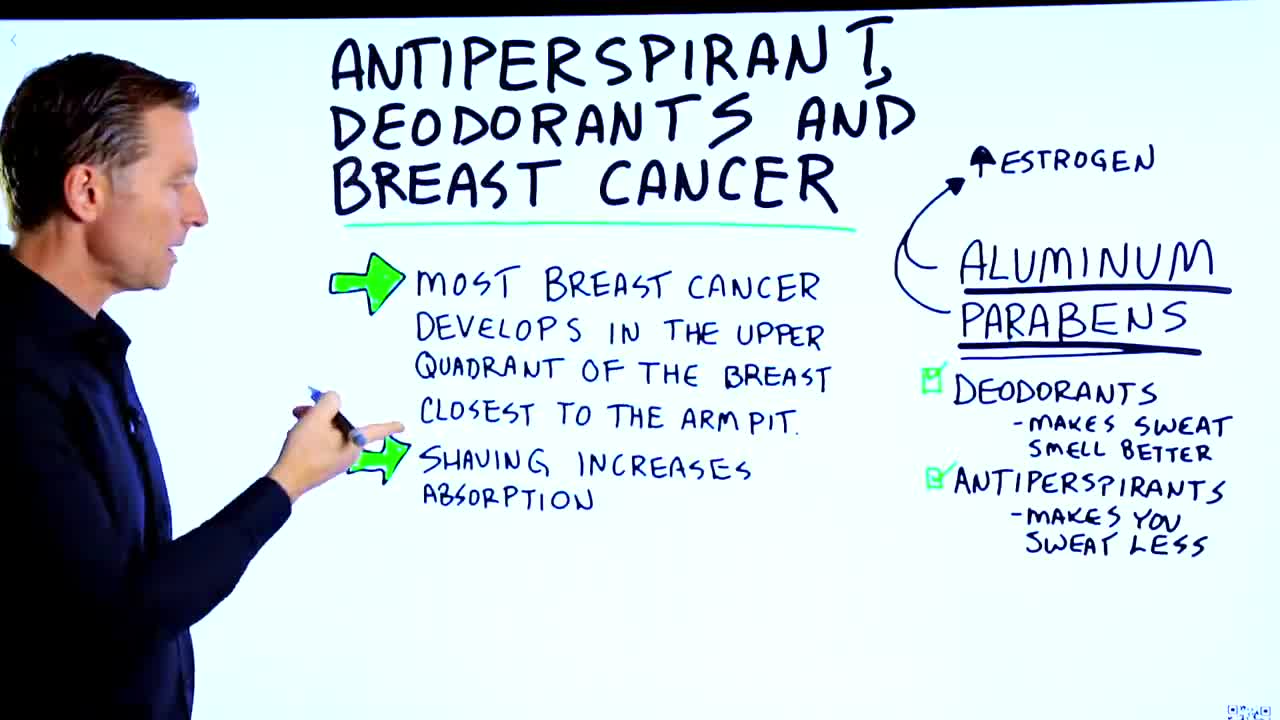 ANTIPERSPIRANT,
DEODORANTS AND
BREAST CANCER
MOST BREAST CANCER
DEVELOPS IN THE UPPER
QUADRANT OF THE BREAST
CLOSEST TO THE ARM PIT.
SHAVING INCREASES
ABSORPTION
ESTROGEN
ALUMINUM
PARABENS
DEODORANTS
-MAKES SWEAT
SMELL BETTER
ANTIPERSPIRANTS
-MAKES YOU
SWEAT LESS